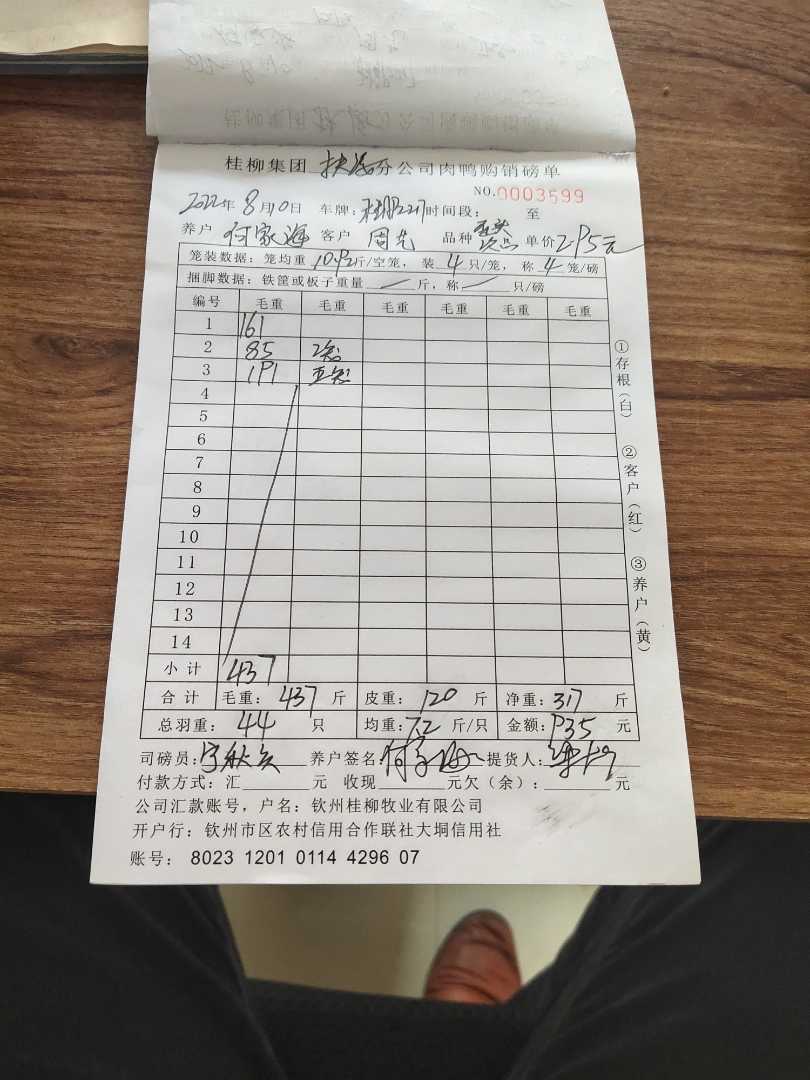 桂柳集团 扶绥分公司肉鸭购销磅单
NO.0003599
2022年 8月10日 车牌: 时间段: 至
养户 何家海 客户 周先 品种 单价2.95元
笼装数据: 笼均重10.92斤/空笼, 装 4 只/笼, 称 4 笼/磅
捆脚数据: 铁筐或板子重量 — 斤, 称 — 只/磅
编号 毛重 毛重 毛重 毛重 毛重 毛重
1 161
2 85
3 191
4
5
6
7
8
9
10
11
12
13
14
小计 437
合计 毛重: 437 斤 皮重: 120 斤 净重: 317 斤
总羽重: 44 只 均重: 7.2 斤/只 金额: 935 元
司磅员: 养户签名 何家海 提货人:
付款方式: 汇______元 收现______元欠(余): ______元
公司汇款账号, 户名: 钦州桂柳牧业有限公司
开户行: 钦州市区农村信用合作联社大垌信用社
账号: 8023 1201 0114 4296 07
①存根(白)
②客户(红)
③养户(黄)